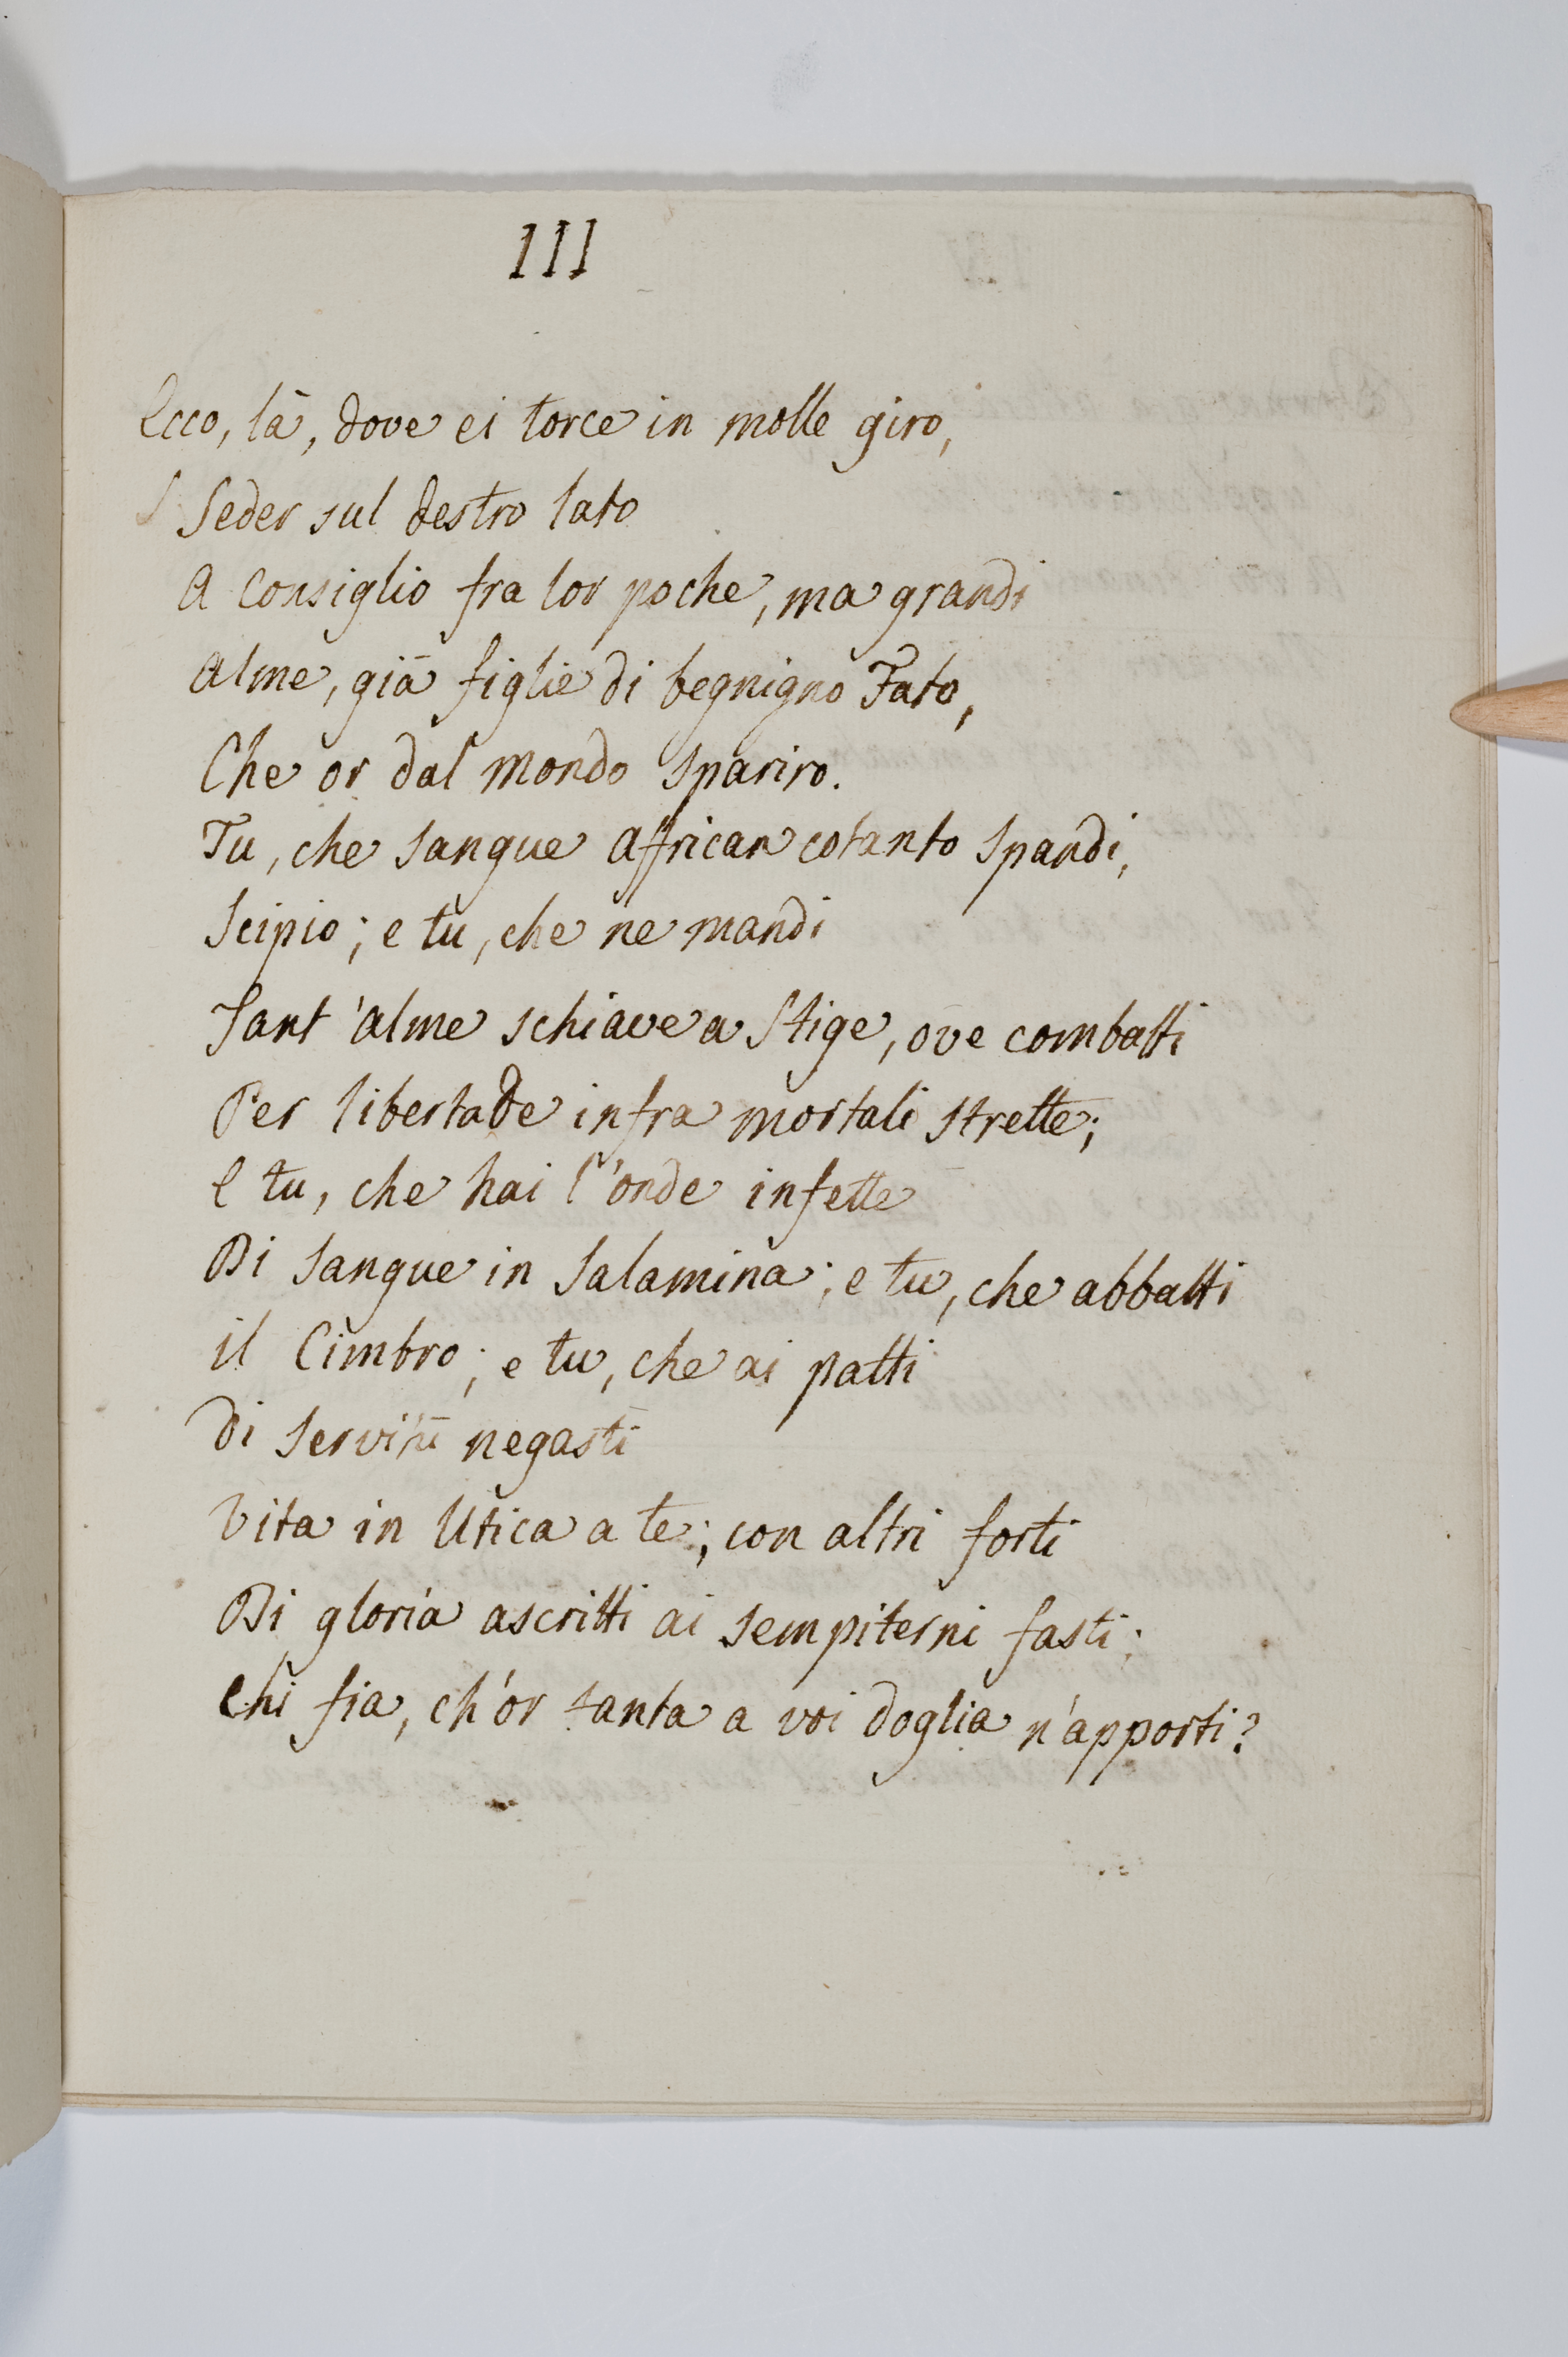 III
Ecco, là, dove ei torce in molle giro,
Seder sul destro lato
A Consiglio fra lor poche, ma grandi
Alme, già figlie di begnigno Fato,
Che or dal Mondo spariro.
Tu, che sangue African cotanto spandi,
Scipio; e tu, che ne mandi
Tant'alme schiave a Stige, ove combatti
Per libertade infra mortali strette;
E tu, che hai l'onde infette
Di sangue in Salamina; e tu, che abbatti
il Cimbro; e tu, che ai patti
di servitù negasti
Vita in Utica a te; con altri forti
Di gloria ascritti ai sempiterni fasti;
Chi fia, ch'or tanta a voi doglia n'apporti?